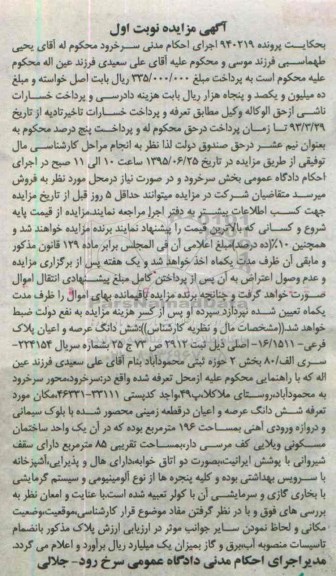 آگهی مزایده نوبت اول
بحکایت پرونده ۹۴۰۲۱۹ اجرای احکام مدنی سرخرود محکوم له آقای یحیی
طهماسبی فرزند موسی و محکوم علیه آقای علی سعیدی فرزند عین اله محکوم
علیه محکوم است به پرداخت مبلغ ۳۳۵/۰۰۰/۰۰۰ ریال بابت اصل خواسته و مبلغ
ده میلیون و یکصد و پنجاه هزار ریال بابت هزینه دادرسی و پرداخت خسارات
ناشی ازحق الوکاله وکیل مطابق تعرفه و پرداخت خسارات تاخیرتادیه از تاریخ
۹۳/۳/۲۹ تا زمان پرداخت درحق محکوم له و پرداخت پنج درصد محکوم به
بعنوان نیم عشر درحق صندوق دولت لذا نظر به انجام مراحل کارشناسی مال
توقیفی از طریق مزایده در تاریخ ۱۳۹۵/۰۶/۲۵ ساعت ۱۰ الی ۱۱ صبح در اجرای
احکام دادگاه عمومی بخش سرخرود و در صورت نیاز درمحل مورد نظر به فروش
میرسد متقاضیان شرکت در مزایده میتوانند حداقل ۵ روز قبل از تاریخ مزایده
جهت کسب اطلاعات بیشتر به دفتر اجرا مراجعه نمایند.مزایده از قیمت پایه
شروع و کسانی که بالاترین قیمت را پیشنهاد نمایند برنده مزایده خواهند شد و
همچنین ۱۰٪(ده درصد)مبلغ اعلامی آن فی المجلس برابر ماده ۱۲۹ قانون مذکور
و مابقی آن ظرف مدت یکماه اخذ خواهد شد و یک هفته پس از برگزاری مزایده
و عدم وصول اعتراض به آن پس از پرداختن کامل مبلغ پیشنهادی انتقال اموال
صورت خواهد گرفت و چنانچه برنده مزایده باقیمانده بهای اموال را ظرف مدت
یکماه تعیین شده نپردازد سپرده او پس از کسر هزینه مزایده به نفع دولت ضبط
خواهد شد.((مشخصات مال و نظریه کارشناس))؛شش دانگ عرصه و اعیان پلاک
فرعی- ۱۶/۱۵۱۱- اصلی ذیل ثبت ۳۹۱۲ ص ۷۳ ج ۲۵ بشماره سریال ۲۲۴۱۵۴-
سری الف/۸۰ بخش ۲ حوزه ثبتی محمودآباد بنام آقای علی سعیدی فرزند عین
اله که با راهنمایی محکوم علیه ازمحل تعرفه شده واقع درسرخرود،محور سرخرود
به محمودآباد،روستای ملاکلا،پ۴۹واحد کدپستی ۳۳۱۱۱-۴۶۳۳۱،مکان مورد
تعرفه شش دانگ عرصه و اعیان درقطعه زمینی محصور شده با بلوک سیمانی
و دروازه ورودی آهنی بمساحت ۱۹۶ مترمربع بوده که در آن یک واحد ساختمان
مسکونی ویلایی کف مرسی دار،بمساحت تقریبی ۸۵ مترمربع دارای سقف
شیروانی با پوشش ایرانیت،بصورت دو اتاق خوابه،دارای هال و پذیرایی،آشپزخانه
با سرویس بهداشتی بوده و کلیه پنجره ها از نوع آلومینیومی و سیستم گرمایشی
با بخاری گازی و سرمایشی آن با کولر تعبیه شده است،با عنایت و امعان نظر به
بررسی های فوق و با در نظر گرفتن مفاد موضوع قرار کارشناسی،موقعیت،وضعیت
مکانی و لحاظ نمودن سایر جوانب موثر در ارزیابی ارزش پلاک مذکور بانضمام
تاسیسات منصوبه آب،برق و گاز بمیزان یک میلیارد ریال برآورد و اعلام می گردد.
مدیراجرای احکام مدنی دادگاه عمومی سرخ رود- جلالی